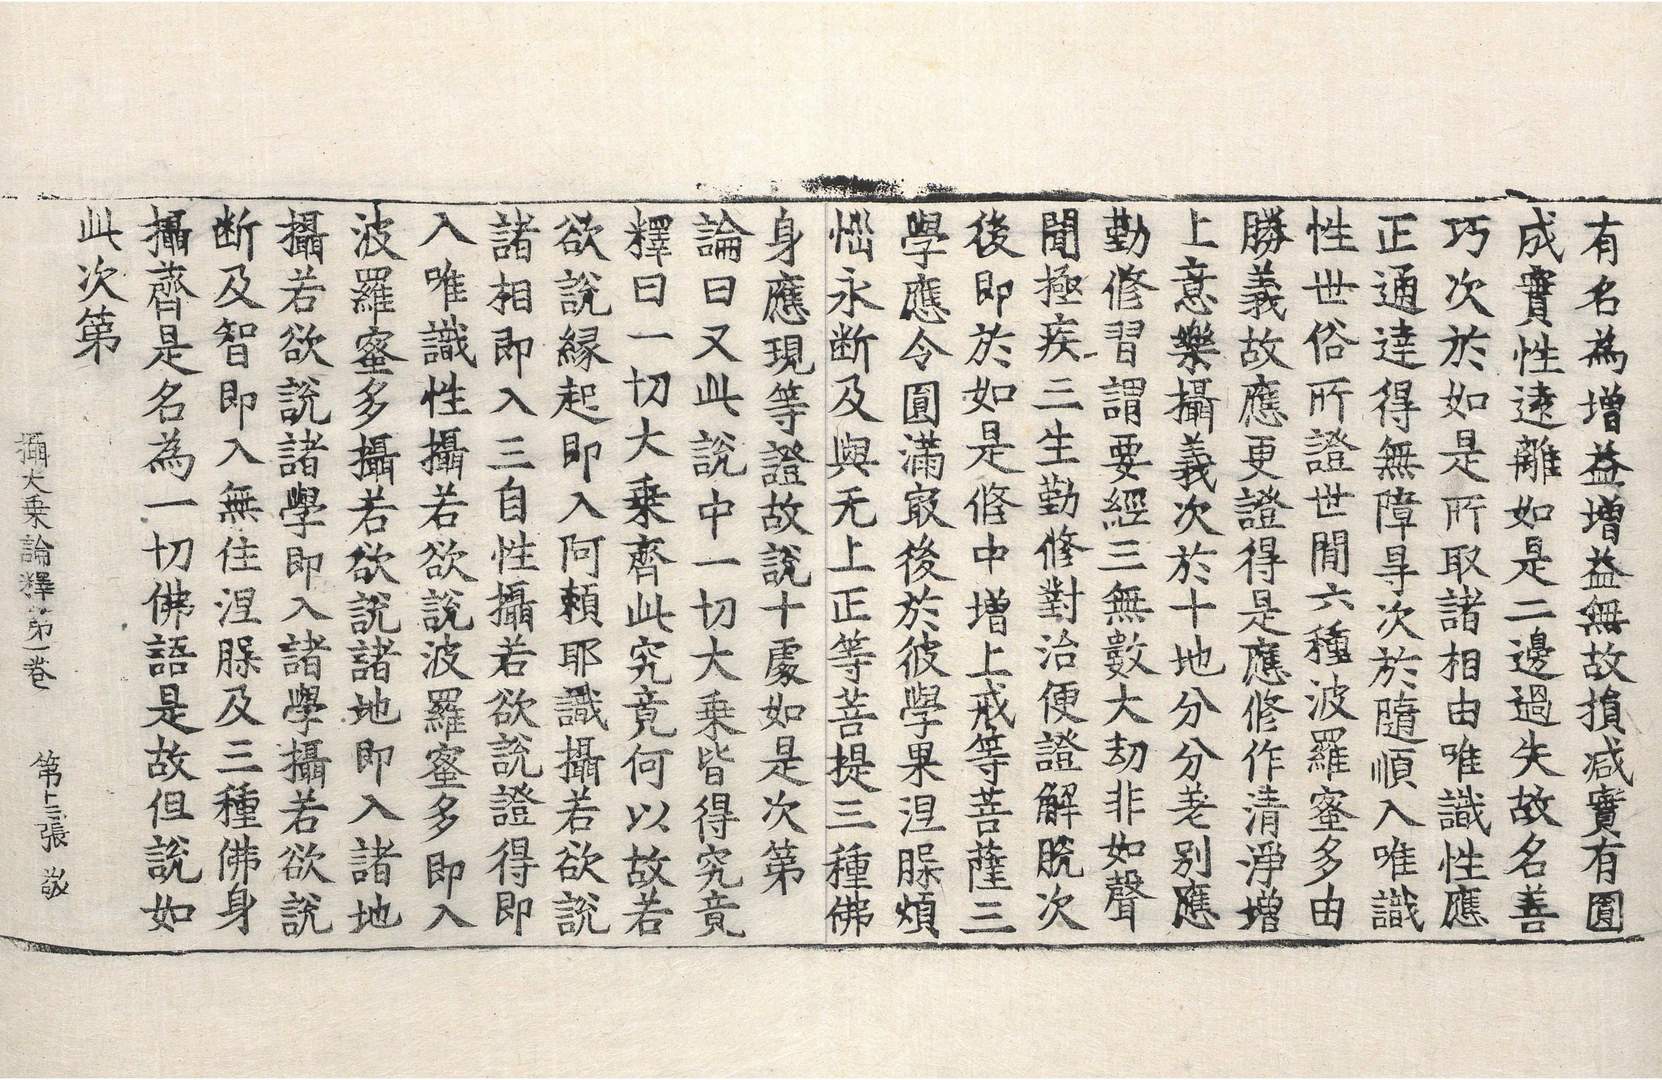 有名為增益增益無故損減實有圓
成實性遠離如是二邊過失故名善
巧次於如是所取諸相由唯識性應
正通達得無障㝵次於隨順入唯識
性世俗所證世間六種波羅蜜多由
勝義故應更證得是應修作清淨增
上意樂攝義次於十地分分差別應
勤修習謂要經三無數大劫非如聲
聞極疾三生勤修對治便證解脫次
後即於如是修中增上戒等菩薩三
學應令圓滿㝡後於彼學果涅槃煩
惱永断及與无上正等菩提三種佛
身應現等證故說十處如是次第
論曰又此說中一切大乗皆得究竟
釋曰一切大乗齊此究竟何以故若
欲說縁起即入阿頼耶識攝若欲說
諸相即入三自性攝若欲說證得即
入唯識性攝若欲說波羅蜜多即入
波羅蜜多攝若欲說諸地即入諸地
攝若欲說諸學即入諸學攝若欲說
断及智即入無住涅槃及三種佛身
攝齊是名為一切佛語是故但說如
此次第
攝大乗論釋第一卷 第十三張